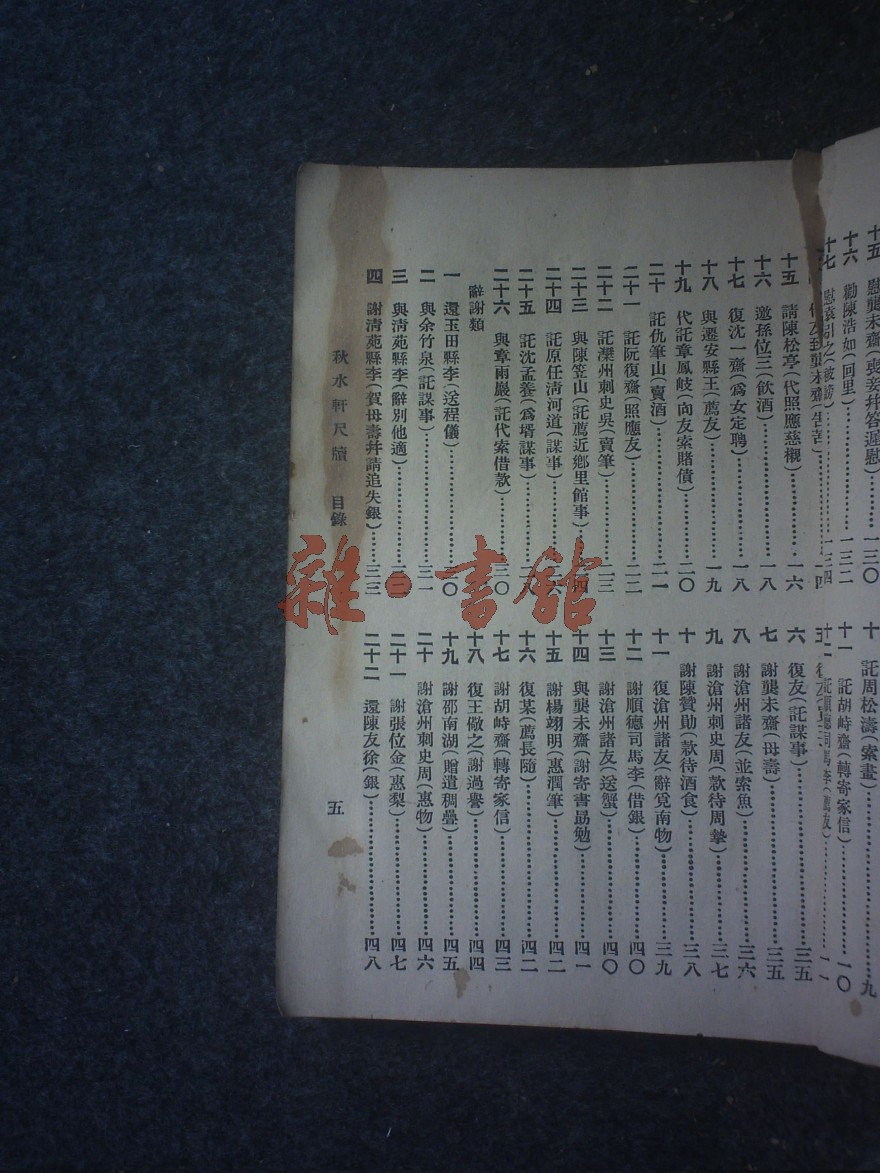 十五 慰龔未齋(喪妾幷答遲慰)……一三〇
十六 勸陳浩如(回里)……一三二
十七 慰袁引之(被謗)……一三四
十 託周松濤(索畫)……九
十一 託胡峙齋(轉寄家信)……一〇
十五 請陳松亭(代照應慈櫬)……一六
十六 邀孫位三(飲酒)……一八
十七 復沈一齋(爲女定聘)……一八
十八 與遷安縣王(薦友)……一九
十九 代託章鳳岐(向友索賭債)……二〇
二十 託仇筆山(賣酒)……二一
二十一 託阮復齋(照應友)……二三
二十二 託灤州刺史吳(賣筆)……二三
二十三 與陳笠山(託薦近鄉里館事)……二四
二十四 託原任淸河道(謀事)
二十五 託沈孟養(爲壻謀事)……二八
二十六 與章雨巖(託代索借款)……三〇
辭謝類
一 還玉田縣李(送程儀)……三〇
二 與余竹泉(託謀事)……三一
三 與淸苑縣李(辭別他適)
四 謝淸苑縣李(賀母壽幷請追失銀)……三三
六 復友(託謀事)……三五
七 謝龔未齋(母壽)……三五
八 謝滄州諸友(並索魚)……三六
九 謝滄州刺史周(款待周摯)……三七
十 謝陳贊勛(款待酒食)……三八
十一 復滄州諸友(辭覓南物)……三九
十二 謝順德司馬李(借銀)……四〇
十三 謝滄州諸友(送蟹)……四〇
十四 與龔未齋(謝寄書勗勉)……四一
十五 謝楊翊明(惠潤筆)……四二
十六 復某(薦長隨)……四二
十七 謝胡峙齋(轉寄家信)……四三
十八 復王儆之(謝過譽)……四四
十九 謝邵南湖(贈遺稠疊)……四五
二十 謝滄州刺史周(惠物)……四六
二十一 謝張位金(惠梨)……四七
二十二 還陳友徐(銀)……四八
秋水軒尺牘 目錄
五
雜·書館